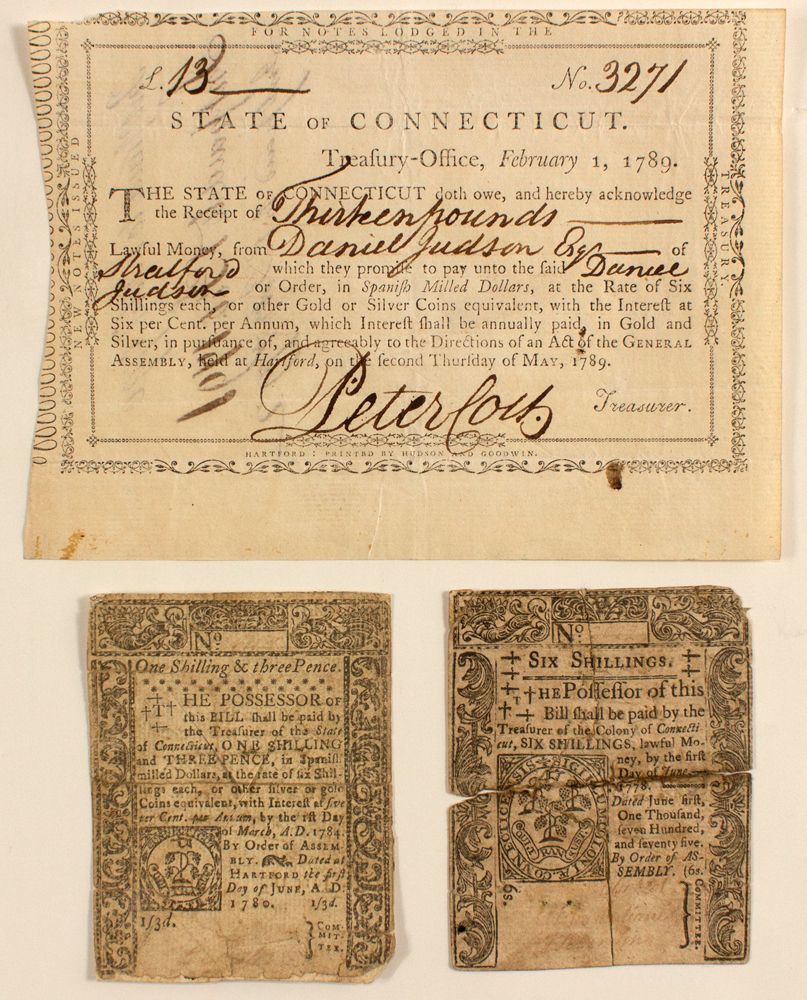 FOR NOTES LODGED IN THE
TREASURY.
NEW NOTES ISSUED
£.13
No. 3271
STATE OF CONNECTICUT.
Treaſury-Office, February 1, 1789.
THE STATE OF CONNECTICUT doth owe, and hereby acknowledge
the Receipt of Thirteen pounds
Lawful Money, from Daniel Judson Esqr of
Stratford which they promiſe to pay unto the ſaid Daniel
Judson or Order, in Spaniſh Milled Dollars, at the Rate of Six
Shillings each, or other Gold or Silver Coins equivalent, with the Intereſt at
Six per Cent. per Annum, which Intereſt ſhall be annually paid, in Gold and
Silver, in purſuance of, and agreeably to the Directions of an Act of the GENERAL
ASSEMBLY, held at Hartford, on the ſecond Thurſday of MAY, 1789.
Peter Colt Treaſurer.
HARTFORD: PRINTED BY HUDSON AND GOODWIN.
No
One Shilling & three Pence.
THE POSSESSOR OF
this BILL ſhall be paid by
the Treaſurer of the State
of Connecticut, ONE SHILLING
and THREE PENCE, in Spaniſh
milled Dollars, at the rate of ſix Shil-
lings each, or other ſilver or gold
Coins equivalent, with Intereſt at five
per Cent. per Annum, by the 1ſt Day
of March, A.D. 1784.
By Order of ASSEM-
BLY. Dated at
HARTFORD the firſt
Day of JUNE, A.D.
1780. 1ſ3d.
1ſ3d.
COM-
MIT-
TEE.
No
SIX SHILLINGS.
THE Poſſeſſor of this
Bill ſhall be paid by the
Treaſurer of the Colony of Connecti-
cut, SIX SHILLINGS, lawful Mo-
ney, by the firſt
Day of June
1778.
Dated June firſt,
One Thouſand,
ſeven Hundred,
and ſeventy five.
By Order of AS-
SEMBLY. (6s.
6s.
COMMITTEE.